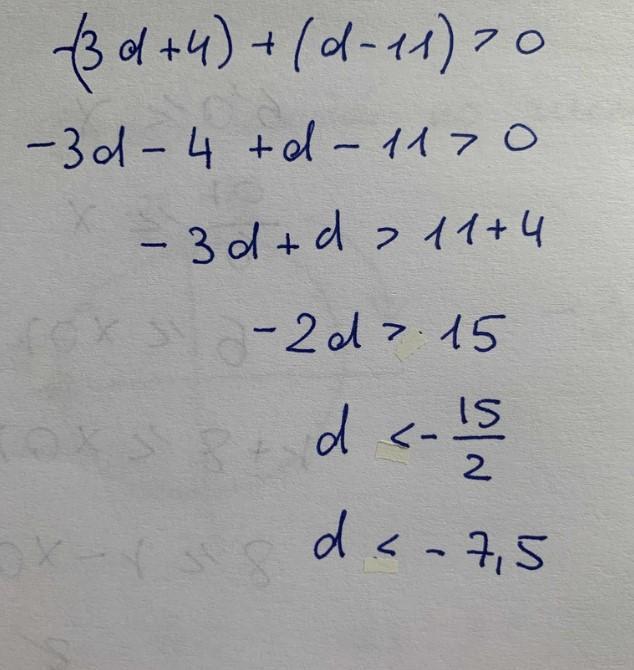 -(3d+4)+(d-11)>0
-3d-4+d-11>0
-3d+d>11+4
-2d>15
d<-15/2
d<-7,5